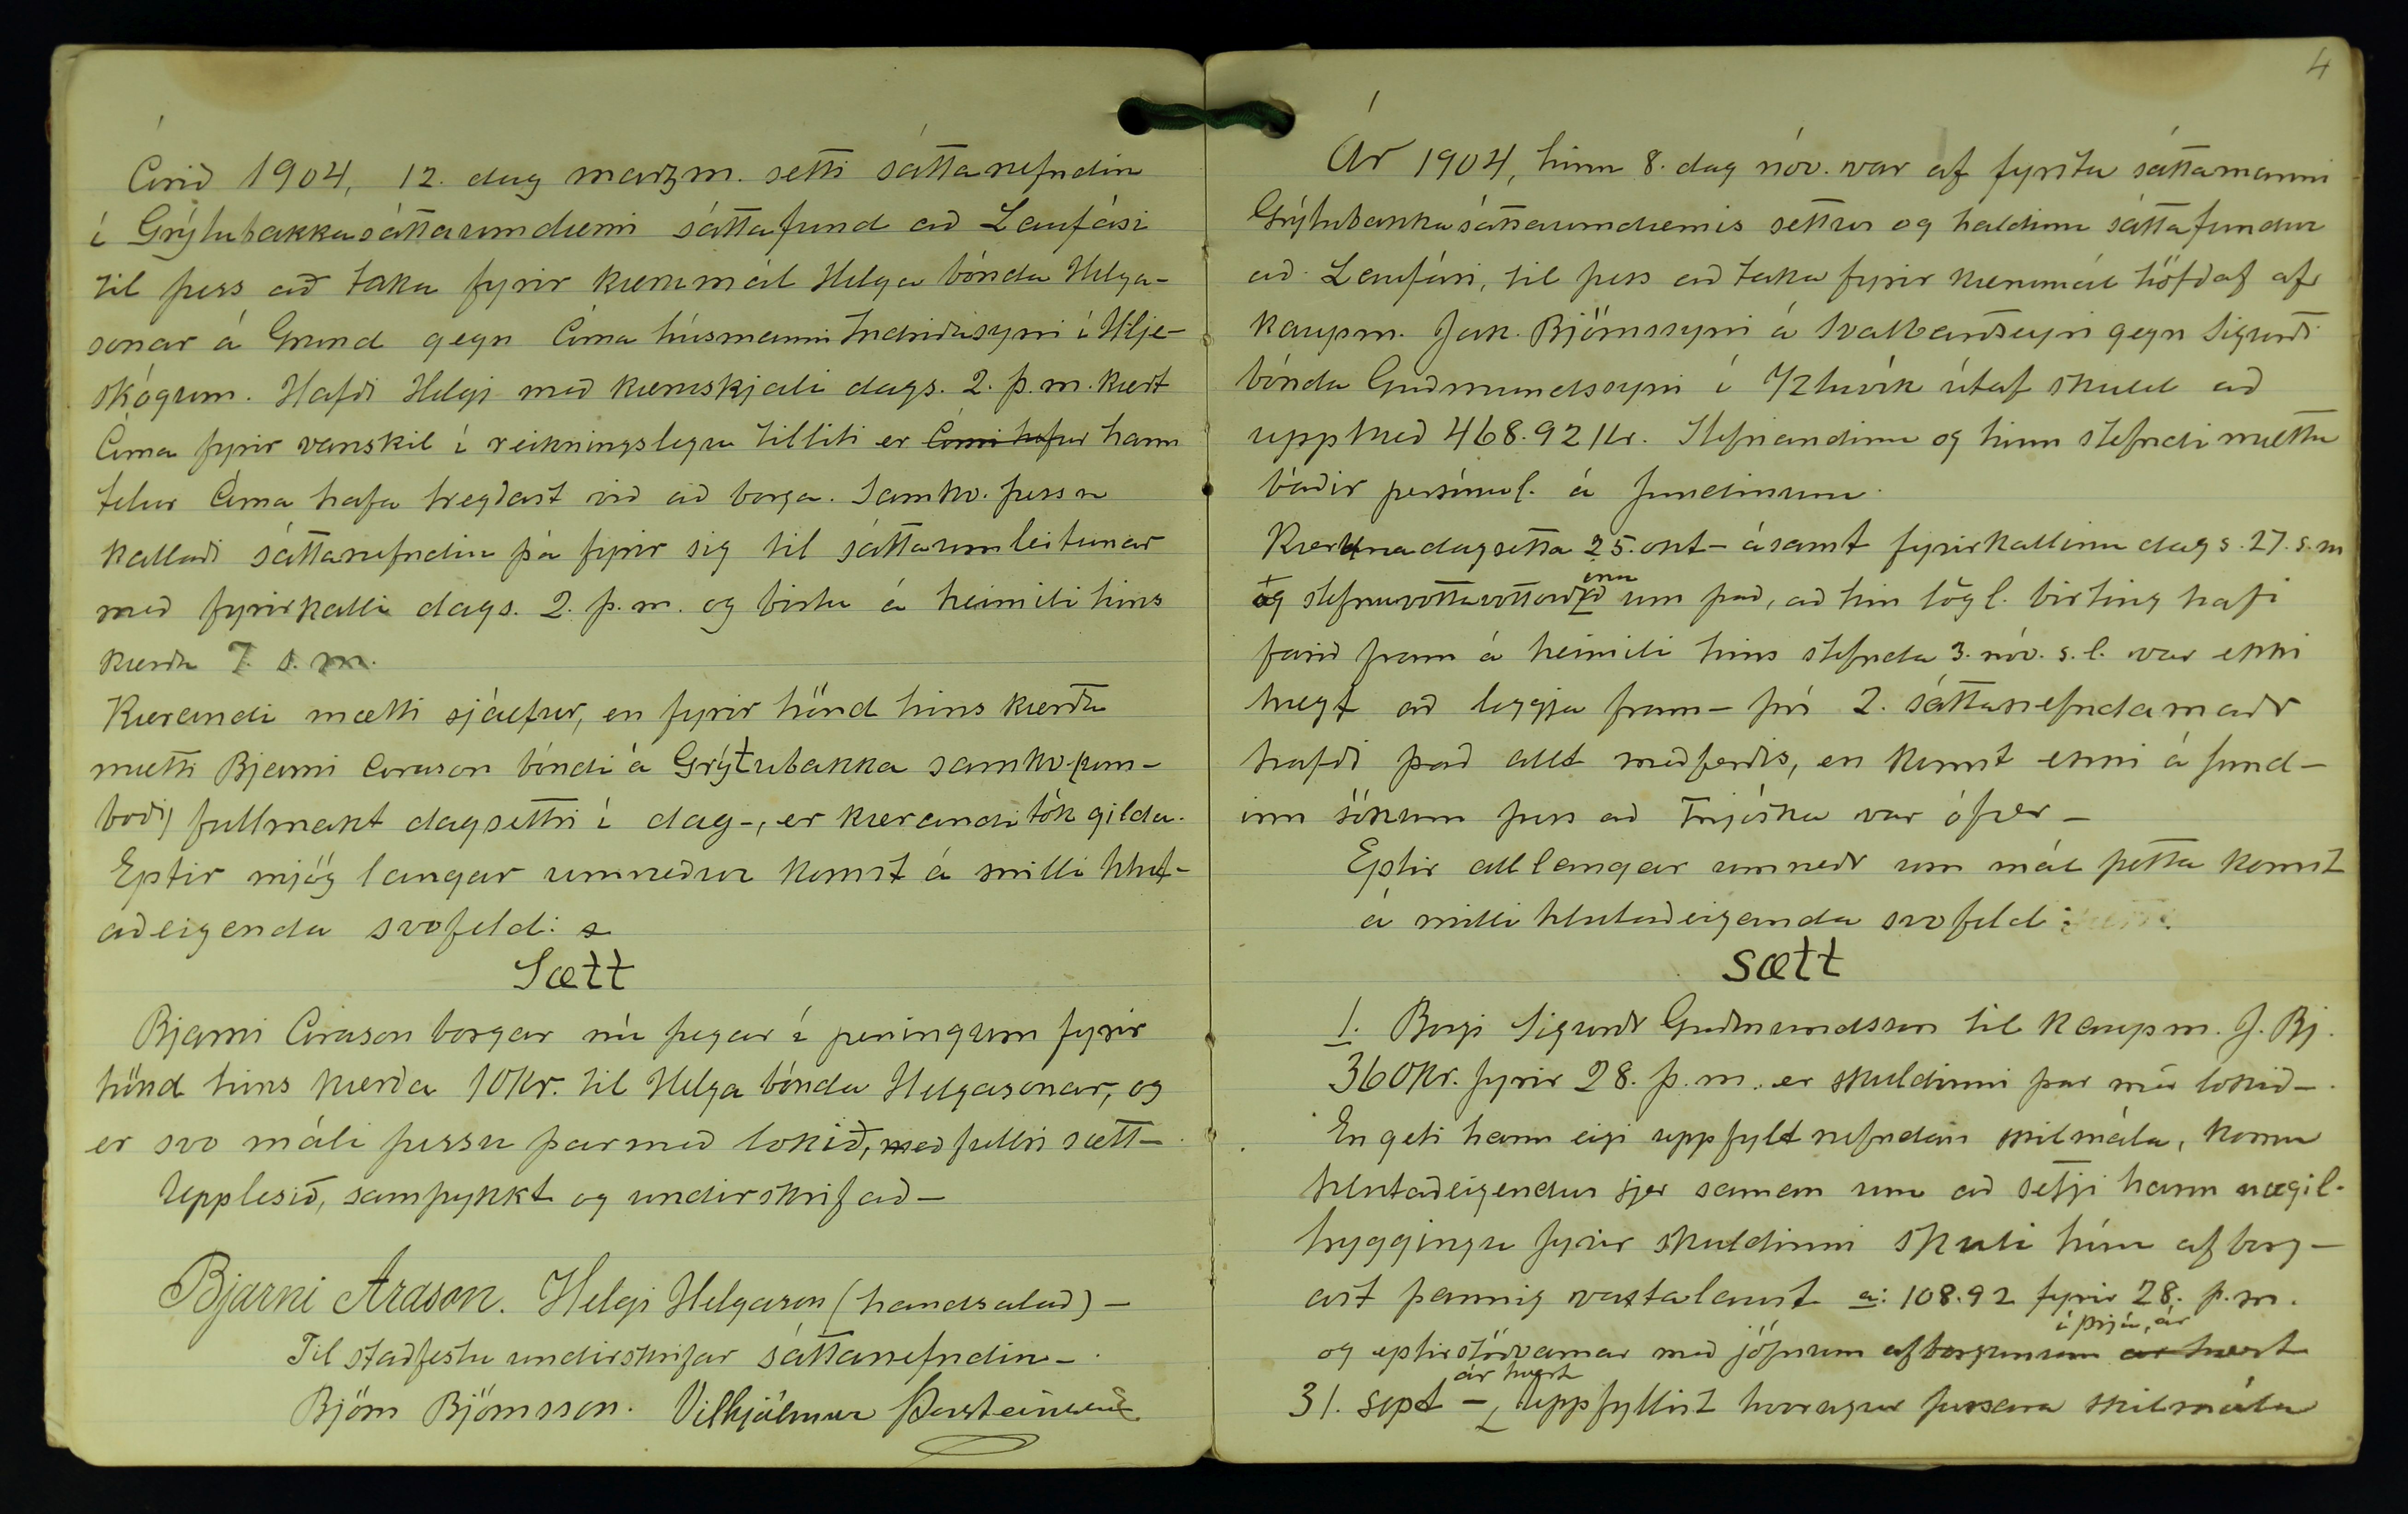 Árið 1904, 12. dag marzm. setti sáttanefndin
í Grýtubakkasáttaumdæmi sáttafund að Laufási
til þess að taka fyrir kærumál Helga bónda Helga-
sonar á Grund gegn Árna húsmanni Indriðasyni í Hlje-
skógum. Hafði Helgi með kæruskjali dags. 2. þ.m. kært
Árna fyrir vanskil í reikningslegu tilliti er Árni hefur hann
telur Árna hafa tregðast við að borga. Samkv. þessu
kallaði sáttanefndin þá fyrir sig til sáttaumleitunar
með fyrirkalli dags. 2. þ.m. og birtu á heimili hins
kærða 7. s.m.
Kærandi mætti sjálfur, en fyrir hönd hins kærða
mætti Bjarni Arason bóndi á Grýtubakka samkv. fram-
boði fullmakt dagsettri í dag-, er kærandi tók gilda.
Eptir mjög langar umræður komst á milli hlut-
aðeigenda svofeld: s
Sætt
Bjarni Arason borgar nú þegar í peningum fyrir
hönd hins kærða 10 kr. til Helga bónda Helgasonar, og
er svo máli þessu þarmeð lokið, með fullri sætt-
Upplesið, samþykkt og undirskrifað-
Bjarni Arason. Helgi Helgason (handsalað) -
Til staðfestu undirskrifar sáttanefndin -
Björn Björnsson. Vilhjálmur Þorsteinsson
4
Ár 1904, hinn 8. dag nóv. var af fyrsta sáttamanni
Grýtubakkasáttaumdæmis settur og haldinn sáttafundur
að Laufási, til þess að taka fyrir kærumál höfðað af
kaupm. Jak. Björnssyni á Svalbarðseyri gegn Sigurði
bónda Guðmundssyni í útaf skuld að
upphæð 468.92 kr. Stefnandinn og hinn stefndi mættu
báðir persónul. á fundinum.
Kæruna dagsetta 25. okt- ásamt fyrirkallinu dags. 27. s.m
og stefnuvottavottorðinu um það, að hin lögl. birting hafi
farið fram á heimili hins stefnda 3. nóv. s.l. var ekki
hægt að leggja fram - því 2. sáttanefndamaðr
hafði það allt meðferðis, en komst ekki á fund-
inn sökum þess að Fnjóská var ófær -
Eptir all langar umræðr um mál þetta komst
á milli hlutaðeigenda svofeld:
sætt
1. Borgi Sigurðr Guðmundsson til kaupm. J. Bj.
360 kr. fyrir 28. þ.m. er skuldinni þar með lokið-
En geti hann eigi uppfylt nefndan skilmála, koma
hlutaðeigendur sjer saman um að setji hann nægil.
tryggingu fyrir skuldinni skuli hún afborg-
ast þannig vaxtalaust a: 108.92 fyrir 28. þ.m.
og eptirstöðvarnar með jöfnum afborgunum ár hvert í þrjú ár
31. sept - ár hvert Uppfyllist hvorugur þessara skilmála